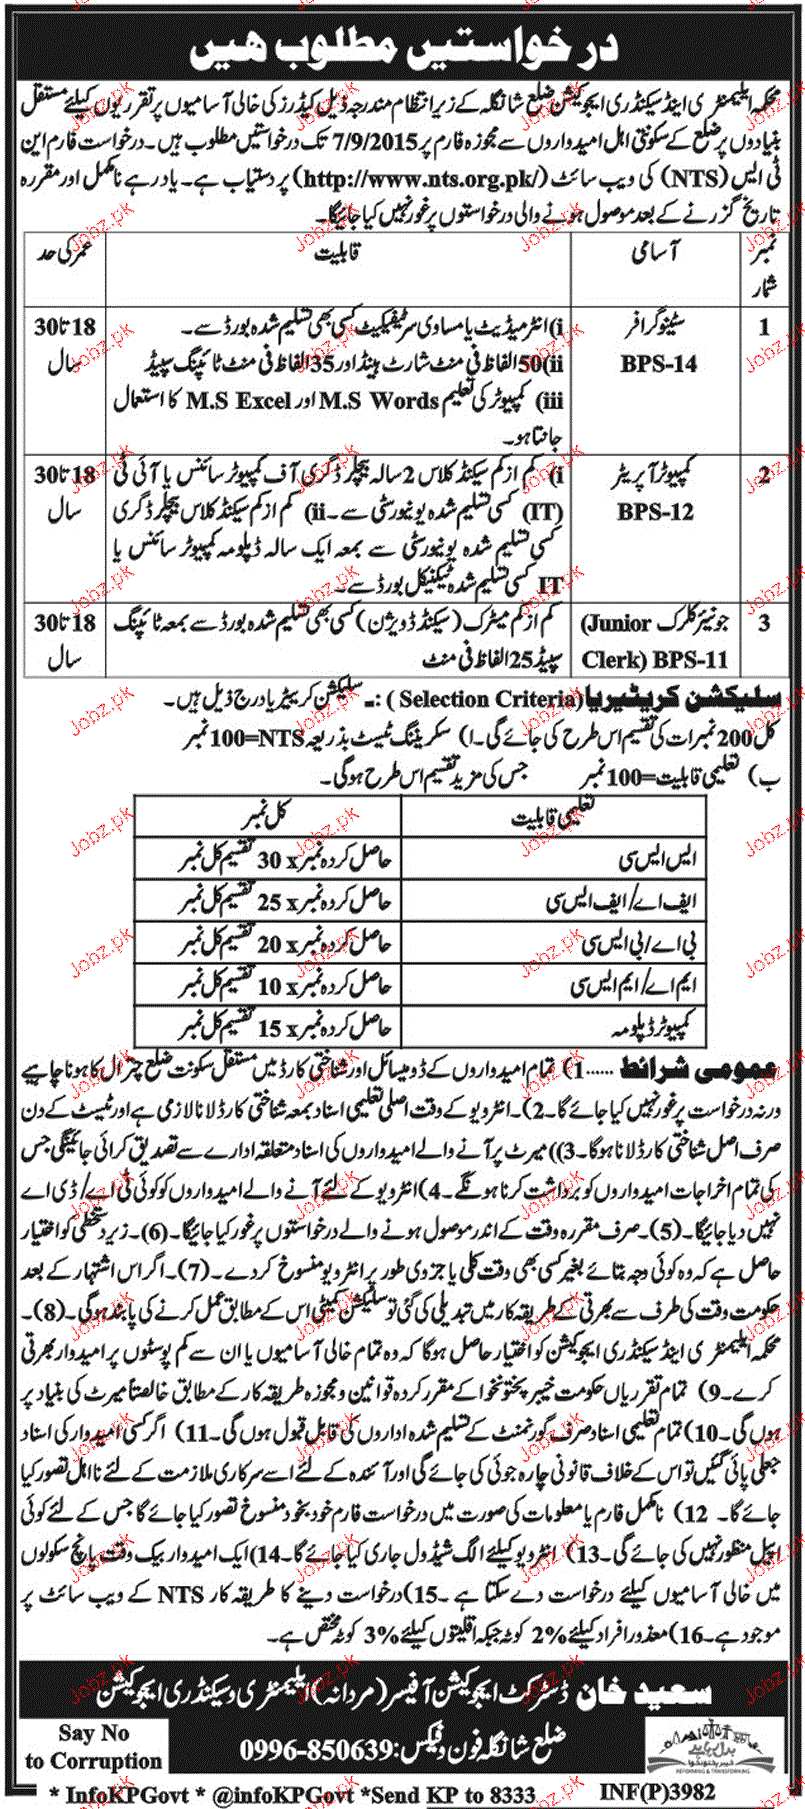 درخواستیں مطلوب ہیں
محکمہ ایلیمنٹری اینڈ سیکنڈری ایجوکیشن ضلع شانگلہ کے زیر انتظام مندرجہ ذیل کیڈرز کی خالی آسامیوں پر تقرریوں کیلئے مستقل
بنیادوں پر ضلع کے سکونتی اہل امیدواروں سے مجوزہ فارم پر 7/9/2015 تک درخواستیں مطلوب ہیں۔ درخواست فارم این
ٹی ایس (NTS) کی ویب سائٹ (http://www.nts.org.pk/) پر دستیاب ہے۔ یاد رہے نامکمل اور مقررہ
تاریخ گزرنے کے بعد موصول ہونے والی درخواستوں پر غور نہیں کیا جائیگا۔
نمبر شمار آسامی قابلیت عمر کی حد
1 سٹینوگرافر BPS-14
i) انٹرمیڈیٹ یا مساوی سرٹیفیکیٹ کسی بھی تسلیم شدہ بورڈ سے۔
ii) 50 الفاظ فی منٹ شارٹ ہینڈ اور 35 الفاظ فی منٹ ٹائپنگ سپیڈ
iii) کمپیوٹر کی تعلیم M.S Words اور M.S Excel کا استعمال
جانتا ہو۔
18 تا 30 سال
2 کمپیوٹر آپریٹر BPS-12
i) کم از کم سیکنڈ کلاس 2 سالہ بیچلر ڈگری آف کمپیوٹر سائنس یا آئی ٹی
(IT) کسی تسلیم شدہ یونیورسٹی سے۔ ii) کم از کم سیکنڈ کلاس بیچلر ڈگری
کسی تسلیم شدہ یونیورسٹی سے بمعہ ایک سالہ ڈپلومہ کمپیوٹر سائنس یا
IT کسی تسلیم شدہ ٹیکنیکل بورڈ سے۔
18 تا 30 سال
3 جونیئر کلرک (Junior Clerk) BPS-11
کم از کم میٹرک (سیکنڈ ڈویژن) کسی بھی تسلیم شدہ بورڈ سے بمعہ ٹائپنگ
سپیڈ 25 الفاظ فی منٹ
18 تا 30 سال
سلیکشن کریٹیریا (Selection Criteria) :۔ سلیکشن کریٹیریا درج ذیل ہیں۔
کل 200 نمبرات کی تقسیم اس طرح کی جائے گی۔ ا) سکریننگ ٹیسٹ بذریعہ NTS=100 نمبر
ب) تعلیمی قابلیت=100 نمبر جس کی مزید تقسیم اس طرح ہوگی۔
تعلیمی قابلیت کل نمبر
ایس ایس سی حاصل کردہ نمبر x 30 تقسیم کل نمبر
ایف اے/ایف ایس سی حاصل کردہ نمبر x 25 تقسیم کل نمبر
بی اے/بی ایس سی حاصل کردہ نمبر x 20 تقسیم کل نمبر
ایم اے/ایم ایس سی حاصل کردہ نمبر x 10 تقسیم کل نمبر
کمپیوٹر ڈپلومہ حاصل کردہ نمبر x 15 تقسیم کل نمبر
عمومی شرائط ......1) تمام امیدواروں کے ڈومیسائل اور شناختی کارڈ میں مستقل سکونت ضلع چترال کا ہونا چاہیے
ورنہ درخواست پر غور نہیں کیا جائے گا۔ 2)۔ انٹرویو کے وقت اصلی تعلیمی اسناد بمعہ شناختی کارڈ لانا لازمی ہے اور ٹیسٹ کے دن
صرف اصل شناختی کارڈ لانا ہوگا۔ 3)) میرٹ پر آنے والے امیدواروں کی اسناد متعلقہ ادارے سے تصدیق کرائی جائینگی جس
کی تمام اخراجات امیدواروں کو برداشت کرنا ہونگے۔ 4) انٹرویو کے لئے آنے والے امیدواروں کو کوئی ٹی اے/ ڈی اے
نہیں دیا جائیگا۔ (5)۔ صرف مقررہ وقت کے اندر موصول ہونے والے درخواستوں پر غور کیا جائیگا۔ (6)۔ زیر دستخطی کو اختیار
حاصل ہے کہ وہ کوئی وجہ بتائے بغیر کسی بھی وقت کلی یا جزوی طور پر انٹرویو منسوخ کر دے۔ (7)۔ اگر اس اشتہار کے بعد
حکومت وقت کی طرف سے بھرتی کے طریقہ کار میں تبدیلی کی گئی تو سلیکشن کمیٹی اس کے مطابق عمل کرنے کی پابند ہوگی۔ (8)۔
محکمہ ایلیمنٹری اینڈ سیکنڈری ایجوکیشن کو اختیار حاصل ہوگا کہ وہ تمام خالی آسامیوں یا ان سے کم پوسٹوں پر امیدوار بھرتی
کرے۔ 9) تمام تقرریاں حکومت خیبر پختونخوا کے مقرر کردہ قوانین و مجوزہ طریقہ کار کے مطابق خالصتاً میرٹ کی بنیاد پر
ہوں گی۔ 10) تمام تعلیمی اسناد صرف گورنمنٹ کے تسلیم شدہ اداروں کی قابل قبول ہوں گی۔ 11) اگر کسی امیدوار کی اسناد
جعلی پائی گئیں تو اس کے خلاف قانونی چارہ جوئی کی جائے گی اور آئندہ کے لئے اسے سرکاری ملازمت کے لئے نااہل تصور کیا
جائے گا۔ 12) نامکمل فارم یا معلومات کی صورت میں درخواست فارم خود بخود منسوخ تصور کیا جائے گا جس کے لئے کوئی
اپیل منظور نہیں کی جائے گی۔ 13) انٹرویو کیلئے الگ شیڈول جاری کیا جائے گا۔ 14) ایک امیدوار بیک وقت پانچ سکولوں
میں خالی آسامیوں کیلئے درخواست دے سکتا ہے۔ 15) درخواست دینے کا طریقہ کار NTS کے ویب سائٹ پر
موجود ہے۔ 16) معذور افراد کیلئے 2% کوٹہ جبکہ اقلیتوں کیلئے 3% کوٹہ مختص ہے۔
سعید خان ڈسٹرکٹ ایجوکیشن آفیسر (مردانہ) ایلیمنٹری و سیکنڈری ایجوکیشن
ضلع شانگلہ فون و فیکس: 0996-850639
Say No
to Corruption
خیبر پختونخوا
REFORMING & TRANSFORMING
* InfoKPGovt * @infoKPGovt *Send KP to 8333
INF(P)3982
Jobz.pk